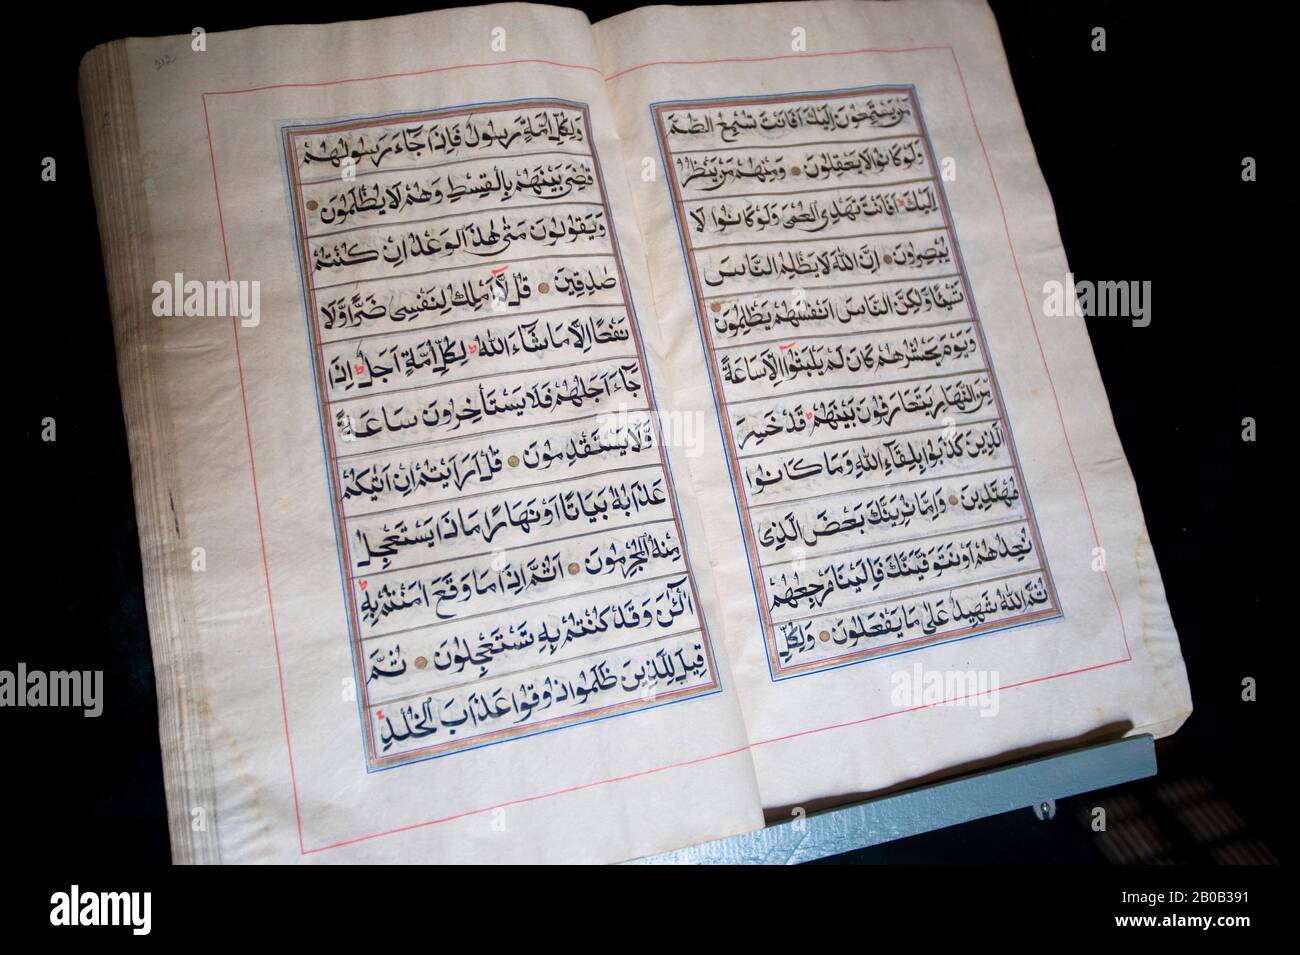 مَّنْ يَسْتَمِعُونَ اِلَيْكَ اَفَاَنْتَ تُسْمِعُ الصُّمَّ
وَلَوْ كَانُوا لَا يَعْقِلُونَ وَمِنْهُمْ مَنْ يَنْظُرُ
اِلَيْكَ اَفَاَنْتَ تَهْدِى الْعُمْىَ وَلَوْ كَانُوا لَا
يُبْصِرُونَ اِنَّ اللّٰهَ لَا يَظْلِمُ النَّاسَ
شَيْئًا وَلٰكِنَّ النَّاسَ اَنْفُسَهُمْ يَظْلِمُونَ
وَيَوْمَ يَحْشُرُهُمْ كَاَنْ لَمْ يَلْبَثُوٓا اِلَّا سَاعَةً
مِنَ النَّهَارِ يَتَعَارَفُونَ بَيْنَهُمْ قَدْ خَسِرَ
الَّذِينَ كَذَّبُوا بِلِقَآءِ اللّٰهِ وَمَا كَانُوا
مُهْتَدِينَ وَاِمَّا نُرِيَنَّكَ بَعْضَ الَّذِى
نَعِدُهُمْ اَوْ نَتَوَفَّيَنَّكَ فَاِلَيْنَا مَرْجِعُهُمْ
ثُمَّ اللّٰهُ شَهِيدٌ عَلٰى مَا يَفْعَلُونَ وَلِكُلِّ
212
وَلِكُلِّ اُمَّةٍ رَسُولٌ فَاِذَا جَآءَ رَسُولُهُمْ
قُضِىَ بَيْنَهُمْ بِالْقِسْطِ وَهُمْ لَا يُظْلَمُونَ
وَيَقُولُونَ مَتٰى هٰذَا الْوَعْدُ اِنْ كُنْتُمْ
صٰدِقِينَ قُلْ لَّآ اَمْلِكُ لِنَفْسِى ضَرًّا وَّلَا
نَفْعًا اِلَّا مَا شَآءَ اللّٰهُ لِكُلِّ اُمَّةٍ اَجَلٌ اِذَا
جَآءَ اَجَلُهُمْ فَلَا يَسْتَأْخِرُونَ سَاعَةً
وَّلَا يَسْتَقْدِمُونَ قُلْ اَرَاَيْتُمْ اِنْ اَتٰىكُمْ
عَذَابُهٗ بَيَاتًا اَوْ نَهَارًا مَاذَا يَسْتَعْجِلُ
مِنْهُ الْمُجْرِمُونَ اَثُمَّ اِذَا مَا وَقَعَ اٰمَنْتُمْ بِهٖ
آلْـٰٔنَ وَقَدْ كُنْتُمْ بِهٖ تَسْتَعْجِلُونَ ثُمَّ
قِيلَ لِلَّذِينَ ظَلَمُوا ذُوقُوا عَذَابَ الْخُلْدِ
alamy
Image ID: 2B0B391
www.alamy.com